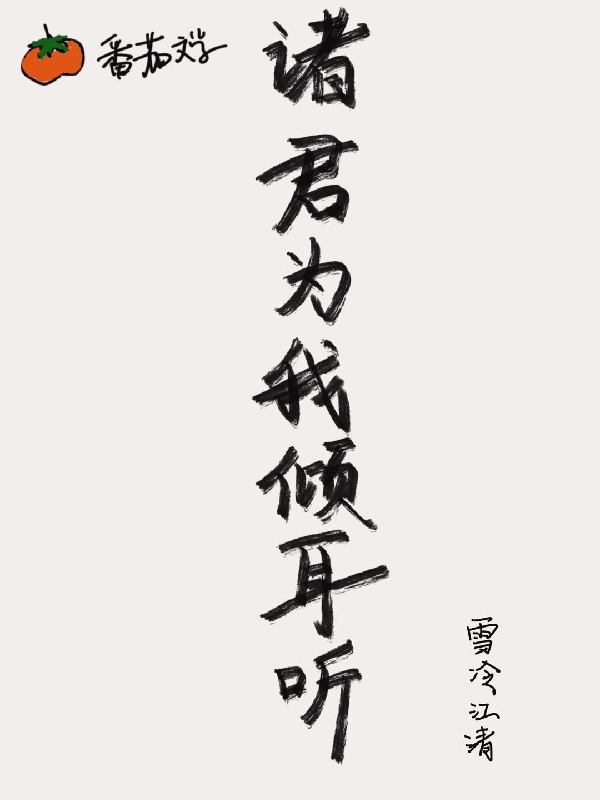 番茄文学
诸君为我倾耳听
雪冷江清